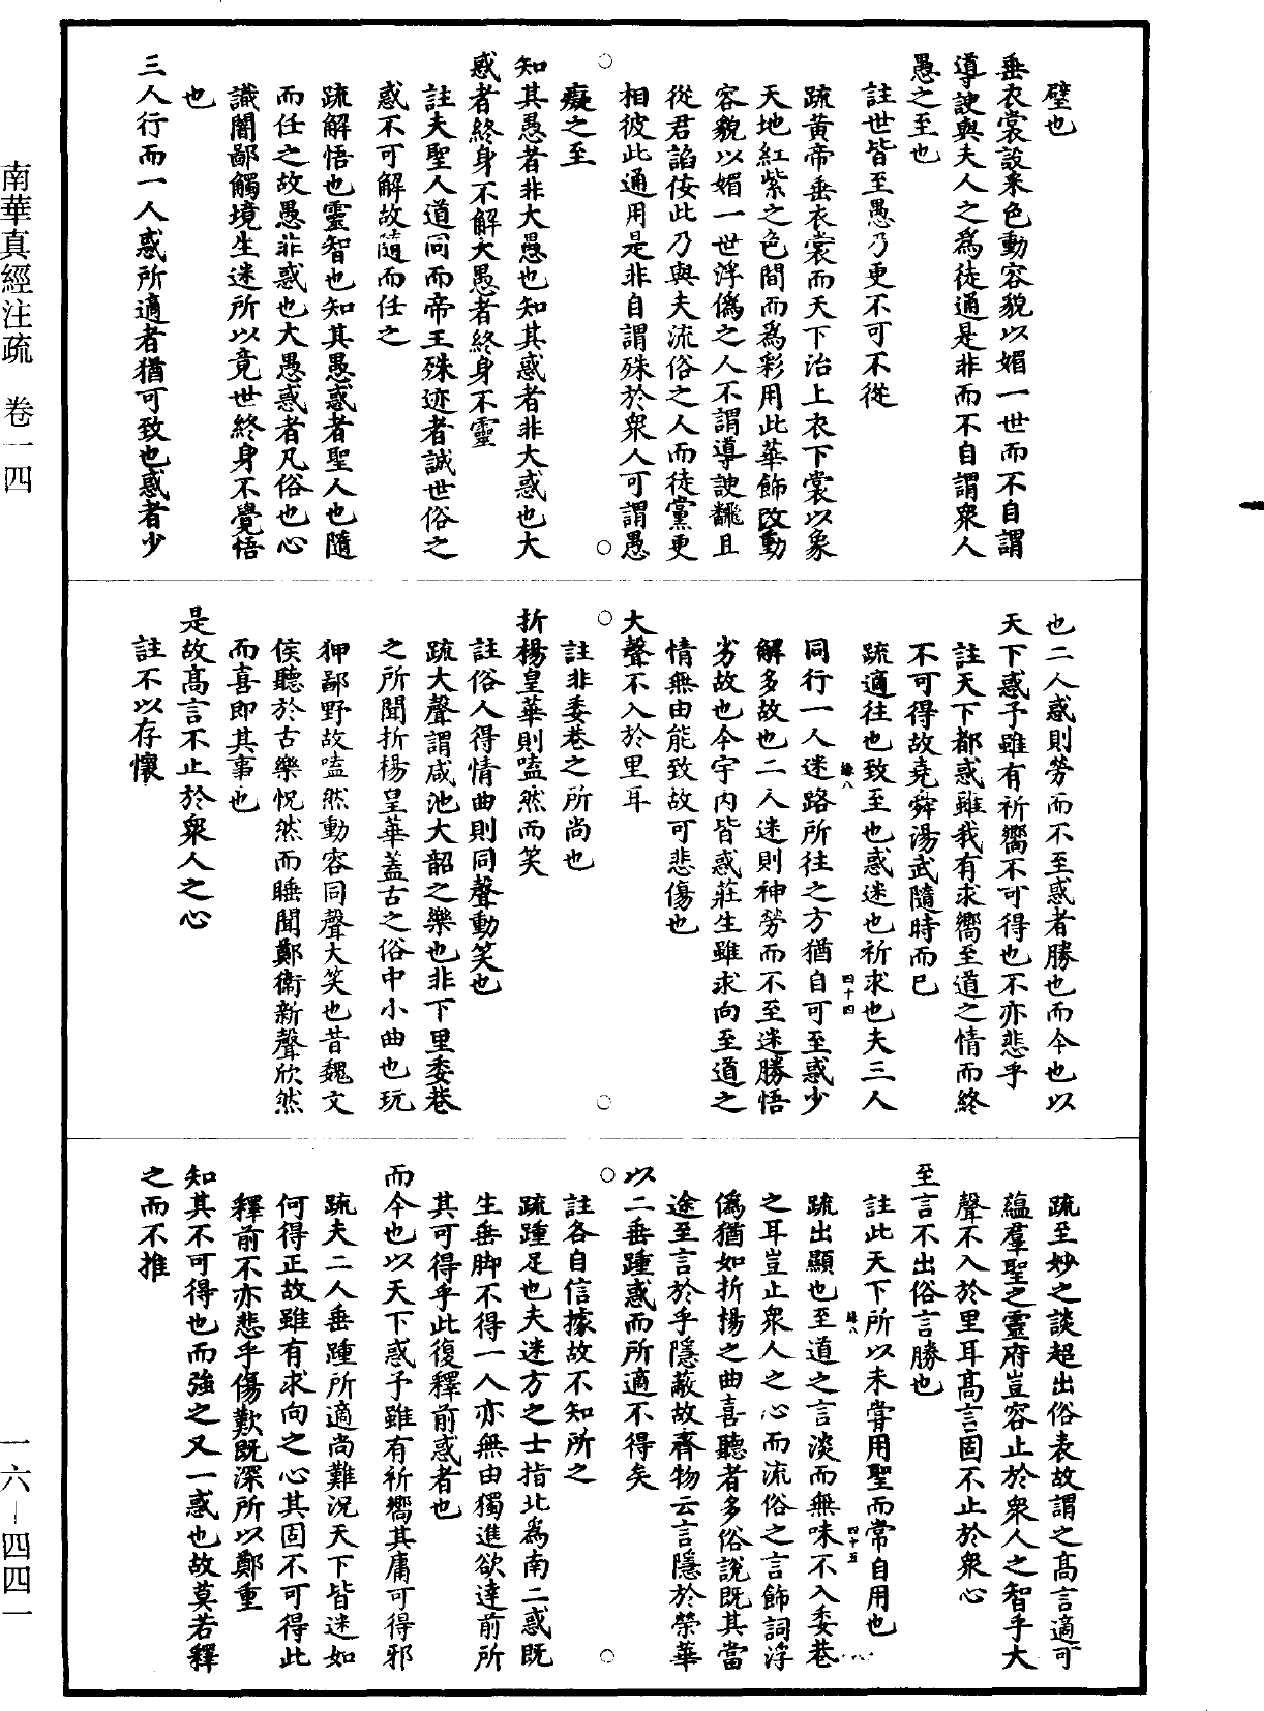 璧也
垂衣裳設采色動容貌以媚一世而不自謂
導諛與夫人之為徒通是非而不自謂衆人
愚之至也
註世皆至愚乃更不可不從
疏黃帝垂衣裳而天下治上衣下裳以象
天地紅紫之色間而為彩用此華飾改動
容貌以媚一世浮僞之人不謂導諛翻且
從君諂佞此乃與夫流俗之人而徒黨更
相彼此通用是非自謂殊於衆人可謂愚
癡之至
知其愚者非大愚也知其惑者非大惑也大
惑者終身不解大愚者終身不靈
註夫聖人道同而帝王殊迹者誠世俗之
惑不可解故隨而任之
疏解悟也靈智也知其愚惑者聖人也隨
而任之故愚非惑也大愚惑者凡俗也心
識闇鄙觸境生迷所以竟世終身不覺悟
也
三人行而一人惑所適者猶可致也惑者少
也二人惑則勞而不至惑者勝也而今也以
天下惑予雖有祈嚮不可得也不亦悲乎
註天下都惑雖我有求嚮至道之情而終
不可得故堯舜湯武隨時而已
疏適往也致至也惑迷也祈求也夫三人
緣八
四十四
同行一人迷路所往之方猶自可至惑少
解多故也二人迷則神勞而不至迷勝悟
劣故也今宇內皆惑莊生雖求向至道之
情無由能致故可悲傷也
大聲不入於里耳
註非委巷之所尚也
折楊皇華則嗑然而笑
註俗人得情曲則同聲動笑也
疏大聲謂咸池大韶之樂也非下里委巷
之所聞折楊皇華蓋古之俗中小曲也玩
狎鄙野故嗑然動容同聲大笑也昔魏文
侯聽於古樂怳然而睡聞鄭衛新聲欣然
而喜即其事也
是故高言不止於衆人之心
註不以存懷
疏至妙之談超出俗表故謂之高言適可
蘊羣聖之靈府豈容止於衆人之智乎大
聲不入於里耳高言固不止於衆心
至言不出俗言勝也
註此天下所以未嘗用聖而常自用也
緣八
四十五
疏出顯也至道之言淡而無味不入委巷
之耳豈止衆人之心而流俗之言飾詞浮
僞猶如折揚之曲喜聽者多俗說既其當
途至言於乎隱蔽故齊物云言隱於榮華
以二垂踵惑而所適不得矣
註各自信據故不知所之
疏踵足也夫迷方之士指北為南二惑既
生垂脚不得一人亦無由獨進欲達前所
其可得乎此復釋前惑者也
而今也以天下惑予雖有祈嚮其庸可得邪
疏夫二人垂踵所適尚難況天下皆迷如
何得正故雖有求向之心其固不可得此
釋前不亦悲乎傷歎既深所以鄭重
知其不可得也而強之又一惑也故莫若釋
之而不推
南華真經注疏 卷一四
一六-四四一